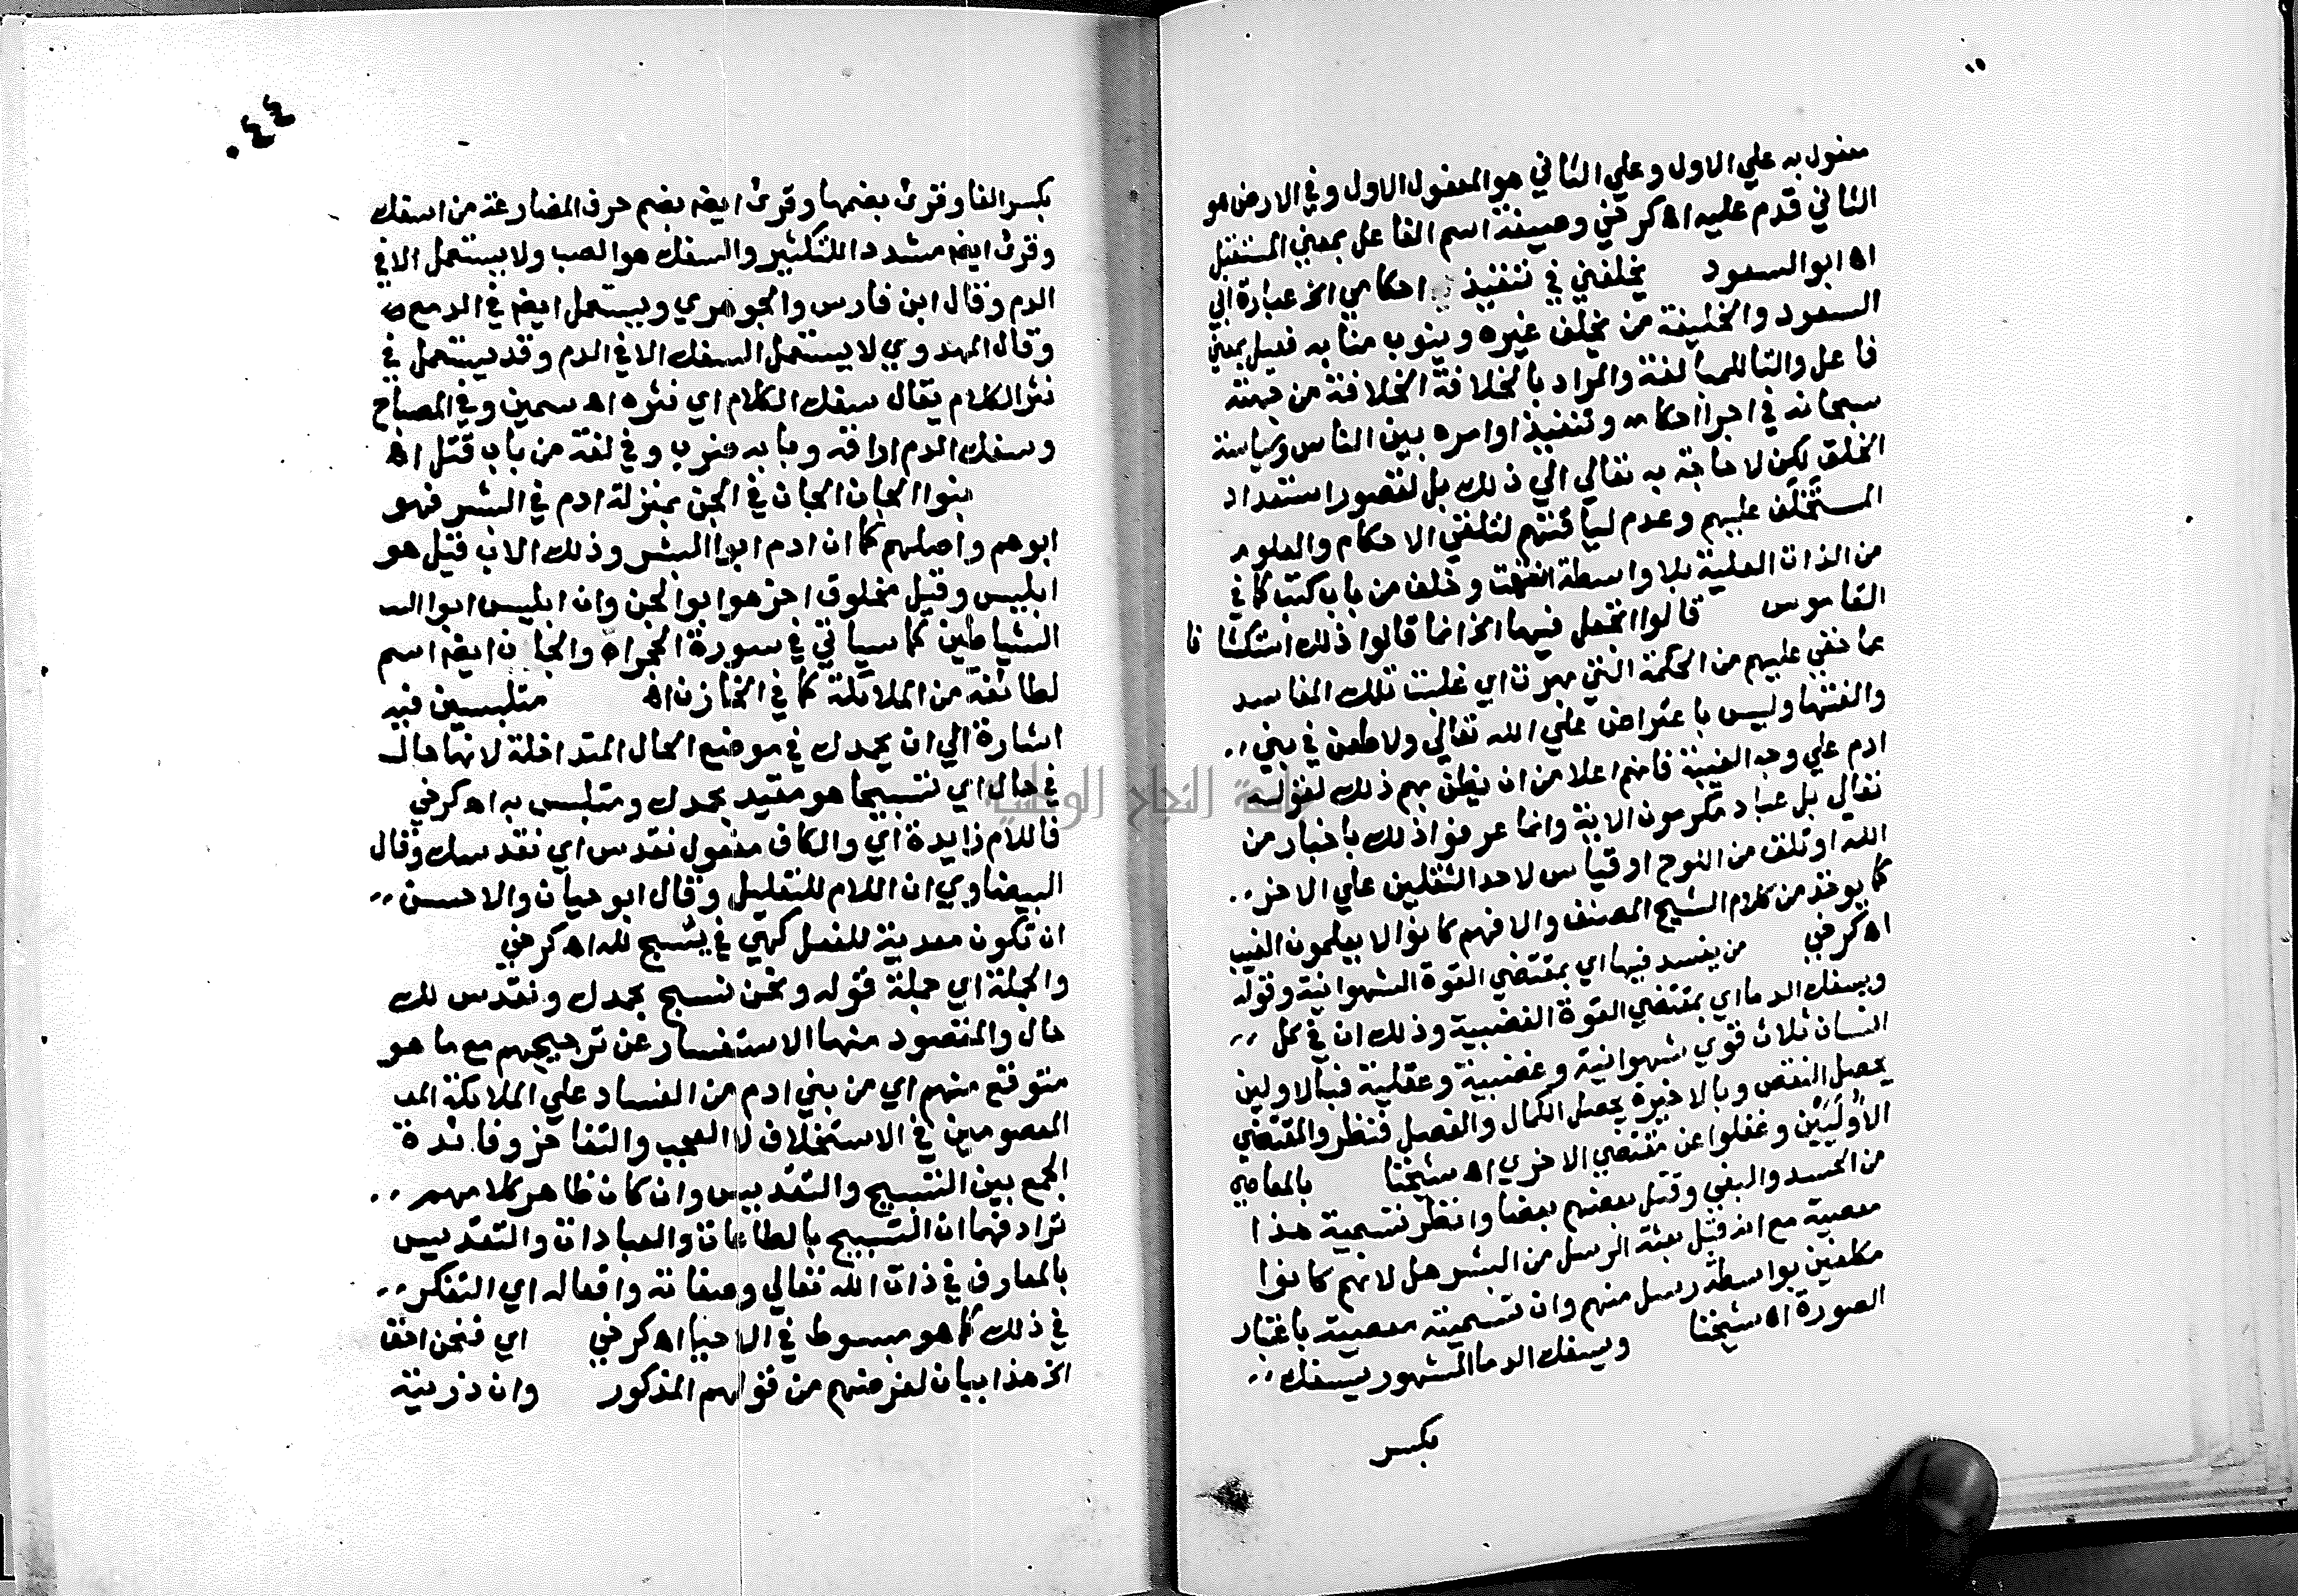 ١٥
مفعول به علي الاول وعلي الثاني هو المفعول الاول وفي الارض هو
الثاني قدم عليه اه كرخي وصيغة اسم الفاعل بمعني المستقبل
اه ابوالسعود يخلفني في تنفيذ احكامي الخ عبارة ابي
السعود والخليفة من يخلف غيره وينوب منابه فعيل بمعني
فاعل والتا للمبالغة والمراد بالخلافة الخلافة من جهته
سبحانه في اجرا احكامه وتنفيذ اوامره بين الناس وسياسة
الخلق لكن لا حاجة به تعالي الي ذلك بل لقصور استعداد
المستخلف عليهم وعدم لياقتهم لتلقي الاحكام والعلوم
من الذات العلية بلا واسطة انتهت وخلف من باب كتب كما في
القاموس قالوا اتجعل فيها الخ انما قالوا ذلك استكشافا
عما خفي عليهم من الحكمة التي بهرت اي غلبت تلك المفاسد
والغتها وليس باعتراض علي الله تعالي ولا طعن في بني
ادم علي وجه الغيبة فانهم اعلا من ان يظن بهم ذلك لقوله
تعالي بل عباد مكرمون الاية وانما عرفوا ذلك باخبار من
الله او تلقف من اللوح او قياس لاحد الثقلين علي الاخر
كما يوخذ من كلام الشيخ المصنف والا فهم كانوا لا يعلمون الغيب
اه كرخي من يفسد فيها اي بمقتضي القوة الشهوانية وقوله
ويسفك الدما اي بمقتضي القوة الغضبية وذلك ان في كل
انسان ثلاث قوي شهوانية وغضبية وعقلية فبالاولين
يحصل النقص وبالاخيرة يحصل الكمال والفضل فنظروا لمقتضي
الاُوليَيْن وغفلوا عن مقتضي الاخري اه شيخنا بالمعاصي
من الحسد والبغي وقتل بعضهم بعضا وانظر تسمية هذا
معصية مع انه قبل بعثة الرسل من البشر هل لانهم كانوا
مكلفين بواسطة رسل منهم وان تسميته معصية باعتبار
الصورة اه شيخنا ويسفك الدما المشهور يسفك
بكسر
٤٤٠
بكسر الفا وقرئ بضمها وقرئ ايضا بضم حرف المضارعة من اسفك
وقرئ ايضا مشددا للتكثير والسفك هو الصب ولا يستعمل الا في
الدم وقال ابن فارس والجوهري ويستعمل ايضا في الدمع
وقال المهدوي لا يستعمل السفك الا في الدم وقد يستعمل في
نثر الكلام يقال سفك الكلام اي نثره اه سمين وفي المصباح
وسفك الدم اراقه وبابه ضرب وفي لغة من باب قتل اه
بنوا الجان الجان في الجن بمنزلة ادم في البشر فهو
ابوهم واصلهم كما ان ادم ابوا البشر وذلك الاب قيل هو
ابليس وقيل مخلوق اخر هو ابو الجن وان ابليس ابوا الشـ
الشياطين كما سياتي في سورة الحجر اه والجان ايضا اسم
لطائفة من الملائكة كما في الخازن اه متلبسين فيه
اشارة الي ان بحمدك في موضع الحال المتداخلة لانها حال
في حال اي تسبيحا هو مقيد بحمدك ومتلبس به اه كرخي
فاللام زايدة اي والكاف مفعول نقدس اي نقدسك وقال
البيضاوي ان اللام للتعليل وقال ابو حيان والاحسن
ان تكون معدية للفعل كهي في يسبح لله اه كرخي
والجملة اي جملة قوله ونحن نسبح بحمدك ونقدس لك
حال والمقصود منها الاستفسار عن ترجيحهم مع ما هو
متوقع منهم اي من بني ادم من الفساد علي الملائكة المعـ
المعصومين في الاستخلاف لا العجب والتفاخر وفائدة
الجمع بين التسبيح والتقديس وان كان ظاهر كلامهم
ترادفهما ان التسبيح بالطاعات والعبادات والتقديس
بالمعارف في ذات الله تعالي وصفاته وافعاله اي التفكر
في ذلك كما هو مبسوط في الاحيا اه كرخي اي فنحن احق
الخ هذا بيان لغرضهم من قولهم المذكور وان ذريته
جامعة النجاح الوطنية